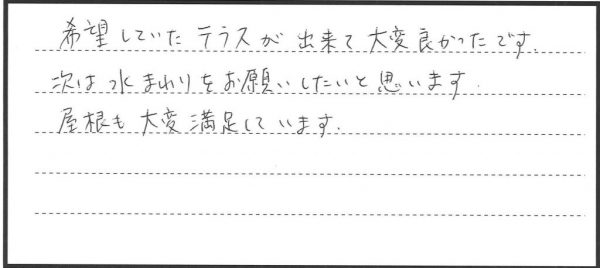 希望していたテラスが出来て大変良かったです.
次は水まわりをお願いしたいと思います.
屋根も大変満足しています.